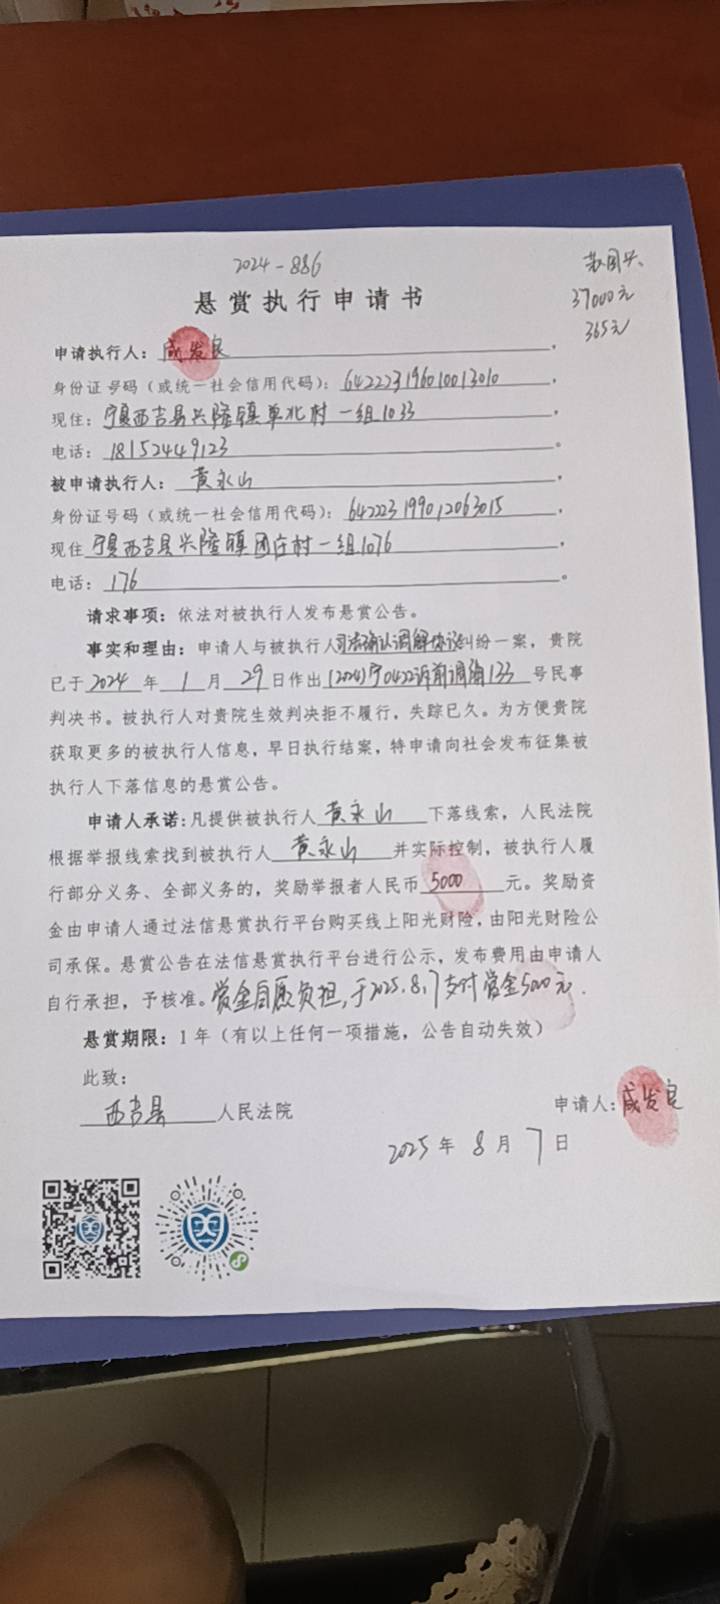 2024-886
37000元
悬赏执行申请书
365元
申请执行人：咸发良。
身份证号码（或统一社会信用代码）：642223196010013010。
现住：宁夏西吉县兴隆镇单北村一组1033。
电话：18152449123。
被申请执行人：黄永山。
身份证号码（或统一社会信用代码）：642223199012063015。
现住宁夏西吉县兴隆镇团庄村一组1076。
电话：176。
请求事项：依法对被执行人发布悬赏公告。
事实和理由：申请人与被执行人司法确认调解协议纠纷一案，贵院
已于2024年1月29日作出(2024)宁0422诉前调确133号民事
判决书。被执行人对贵院生效判决拒不履行，失踪已久。为方便贵院
获取更多的被执行人信息，早日执行结案，特申请向社会发布征集被
执行人下落信息的悬赏公告。
申请人承诺：凡提供被执行人黄永山下落线索，人民法院
根据举报线索找到被执行人黄永山并实际控制，被执行人履
行部分义务、全部义务的，奖励举报者人民币5000元。奖励资
金由申请人通过法信悬赏执行平台购买线上阳光财险，由阳光财险公
司承保。悬赏公告在法信悬赏执行平台进行公示，发布费用由申请人
自行承担，予核准。赏金自愿负担，于2025.8.7支付赏金5000元.
悬赏期限：1年（有以上任何一项措施，公告自动失效）
此致：
西吉县人民法院
申请人：咸发良
2025年8月7日